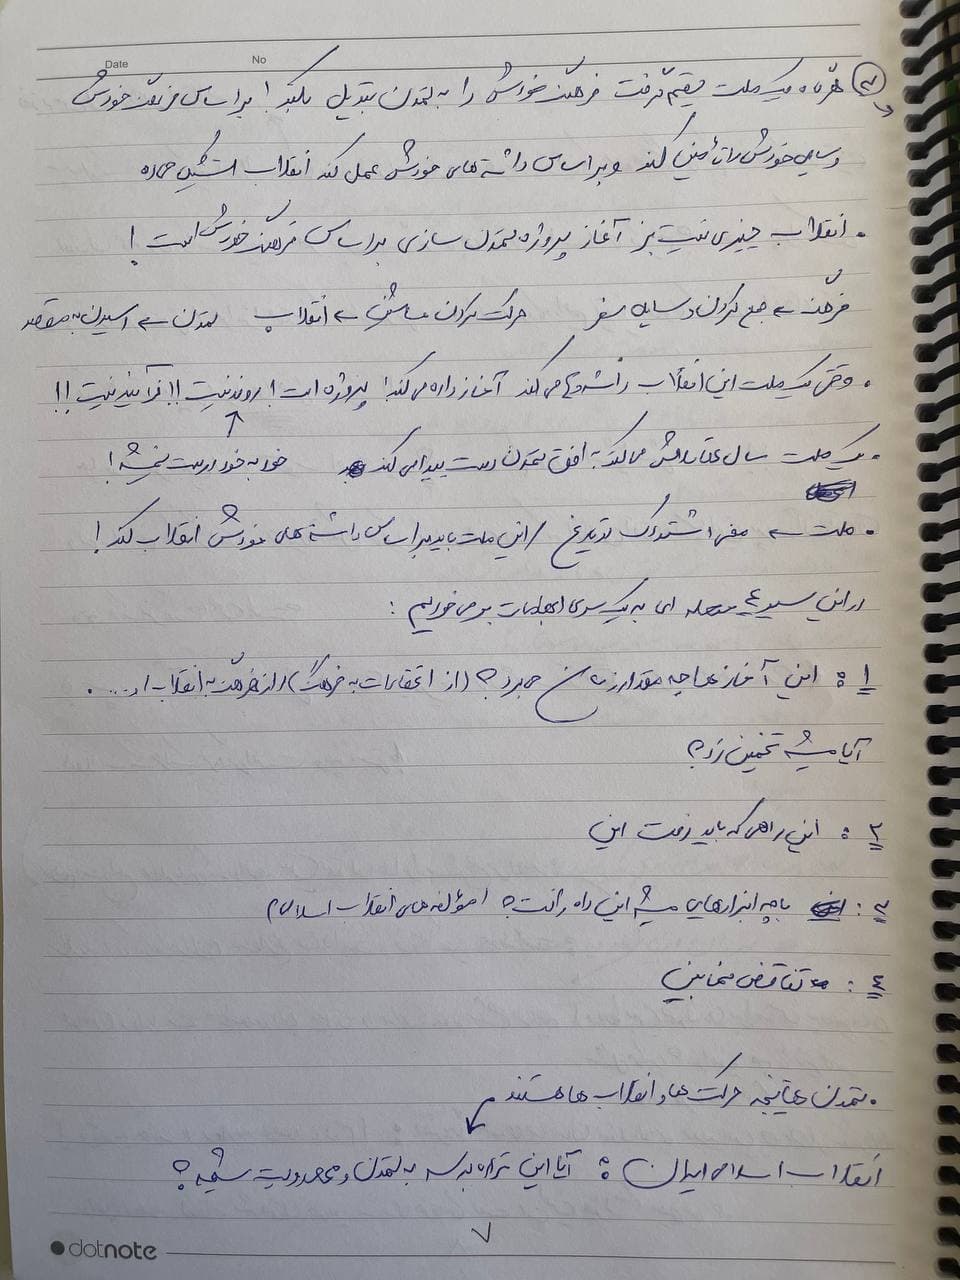 Date No
۳ هرگاه یک ملت تصمیم گرفت فرهنگ خودش را به تمدن تبدیل بکند! بر اساس فرهنگ خودش
وسایل خودش را تأمین کند و بر اساس داشته های خودش عمل کند انقلاب شکل میگیره
• انقلاب چیزی نیست جز آغاز پروژه تمدن سازی بر اساس فرهنگ خودش است!
فرهنگ ← جمع کردن وسایل سفر حرکت کردن ماشین ← انقلاب تمدن ← رسیدن به مقصد
• وقتی یک ملت این انقلاب را شروع می کند آغاز داره می کند! پروژه است! روند نیست!! فرآیند نیست!!
• یک ملت سال ها تلاش می کند به افق تمدن دست پیدا می کند خود به خود درست نمیشه!
• ملت ← اشتراک تاریخ / این ملت باید بر اساس داشته های خودش انقلاب کند!
در این سیر ۴ مرحله ای به یک سری ابهامات بر می خوریم :
۱ : این آغازها چه مقدار زمان میبرد؟ (از اعتقادات به فرهنگ) (از فرهنگ به انقلاب) و ....
آیا میشه تخمین زد؟
۲ : این راهی که باید رفت این
۳ : با چه ابزارهایی میشه این راه رفت؟ مؤلفه های انقلاب اسلامی
۴ : تناقض نمایی
• تمدن ها نتیجه حرکت ها و انقلاب ها هستند
انقلاب اسلامی ایران : آیا این قراره برسه به تمدن و محدودیت شیعه؟
۷
dotnote